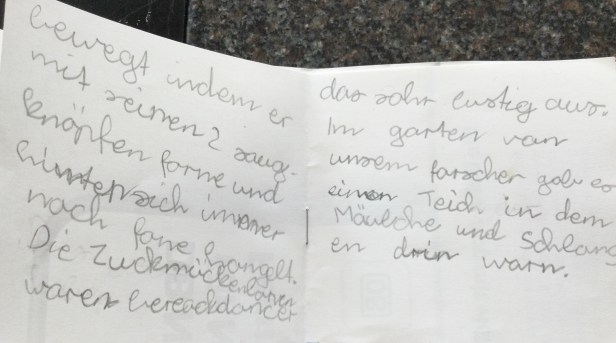 bewegt indem er
mit seinen 2 saug-
knöpfen forne und
hinter sich immer
nach forne hangelt.
Die Zuckmückenlarven
waren bereackdancer
das sahr lustig aus.
Im garten van
unsem forscher gab es
einen Teich in dem
Mäulche und Schlang
en drin warn.